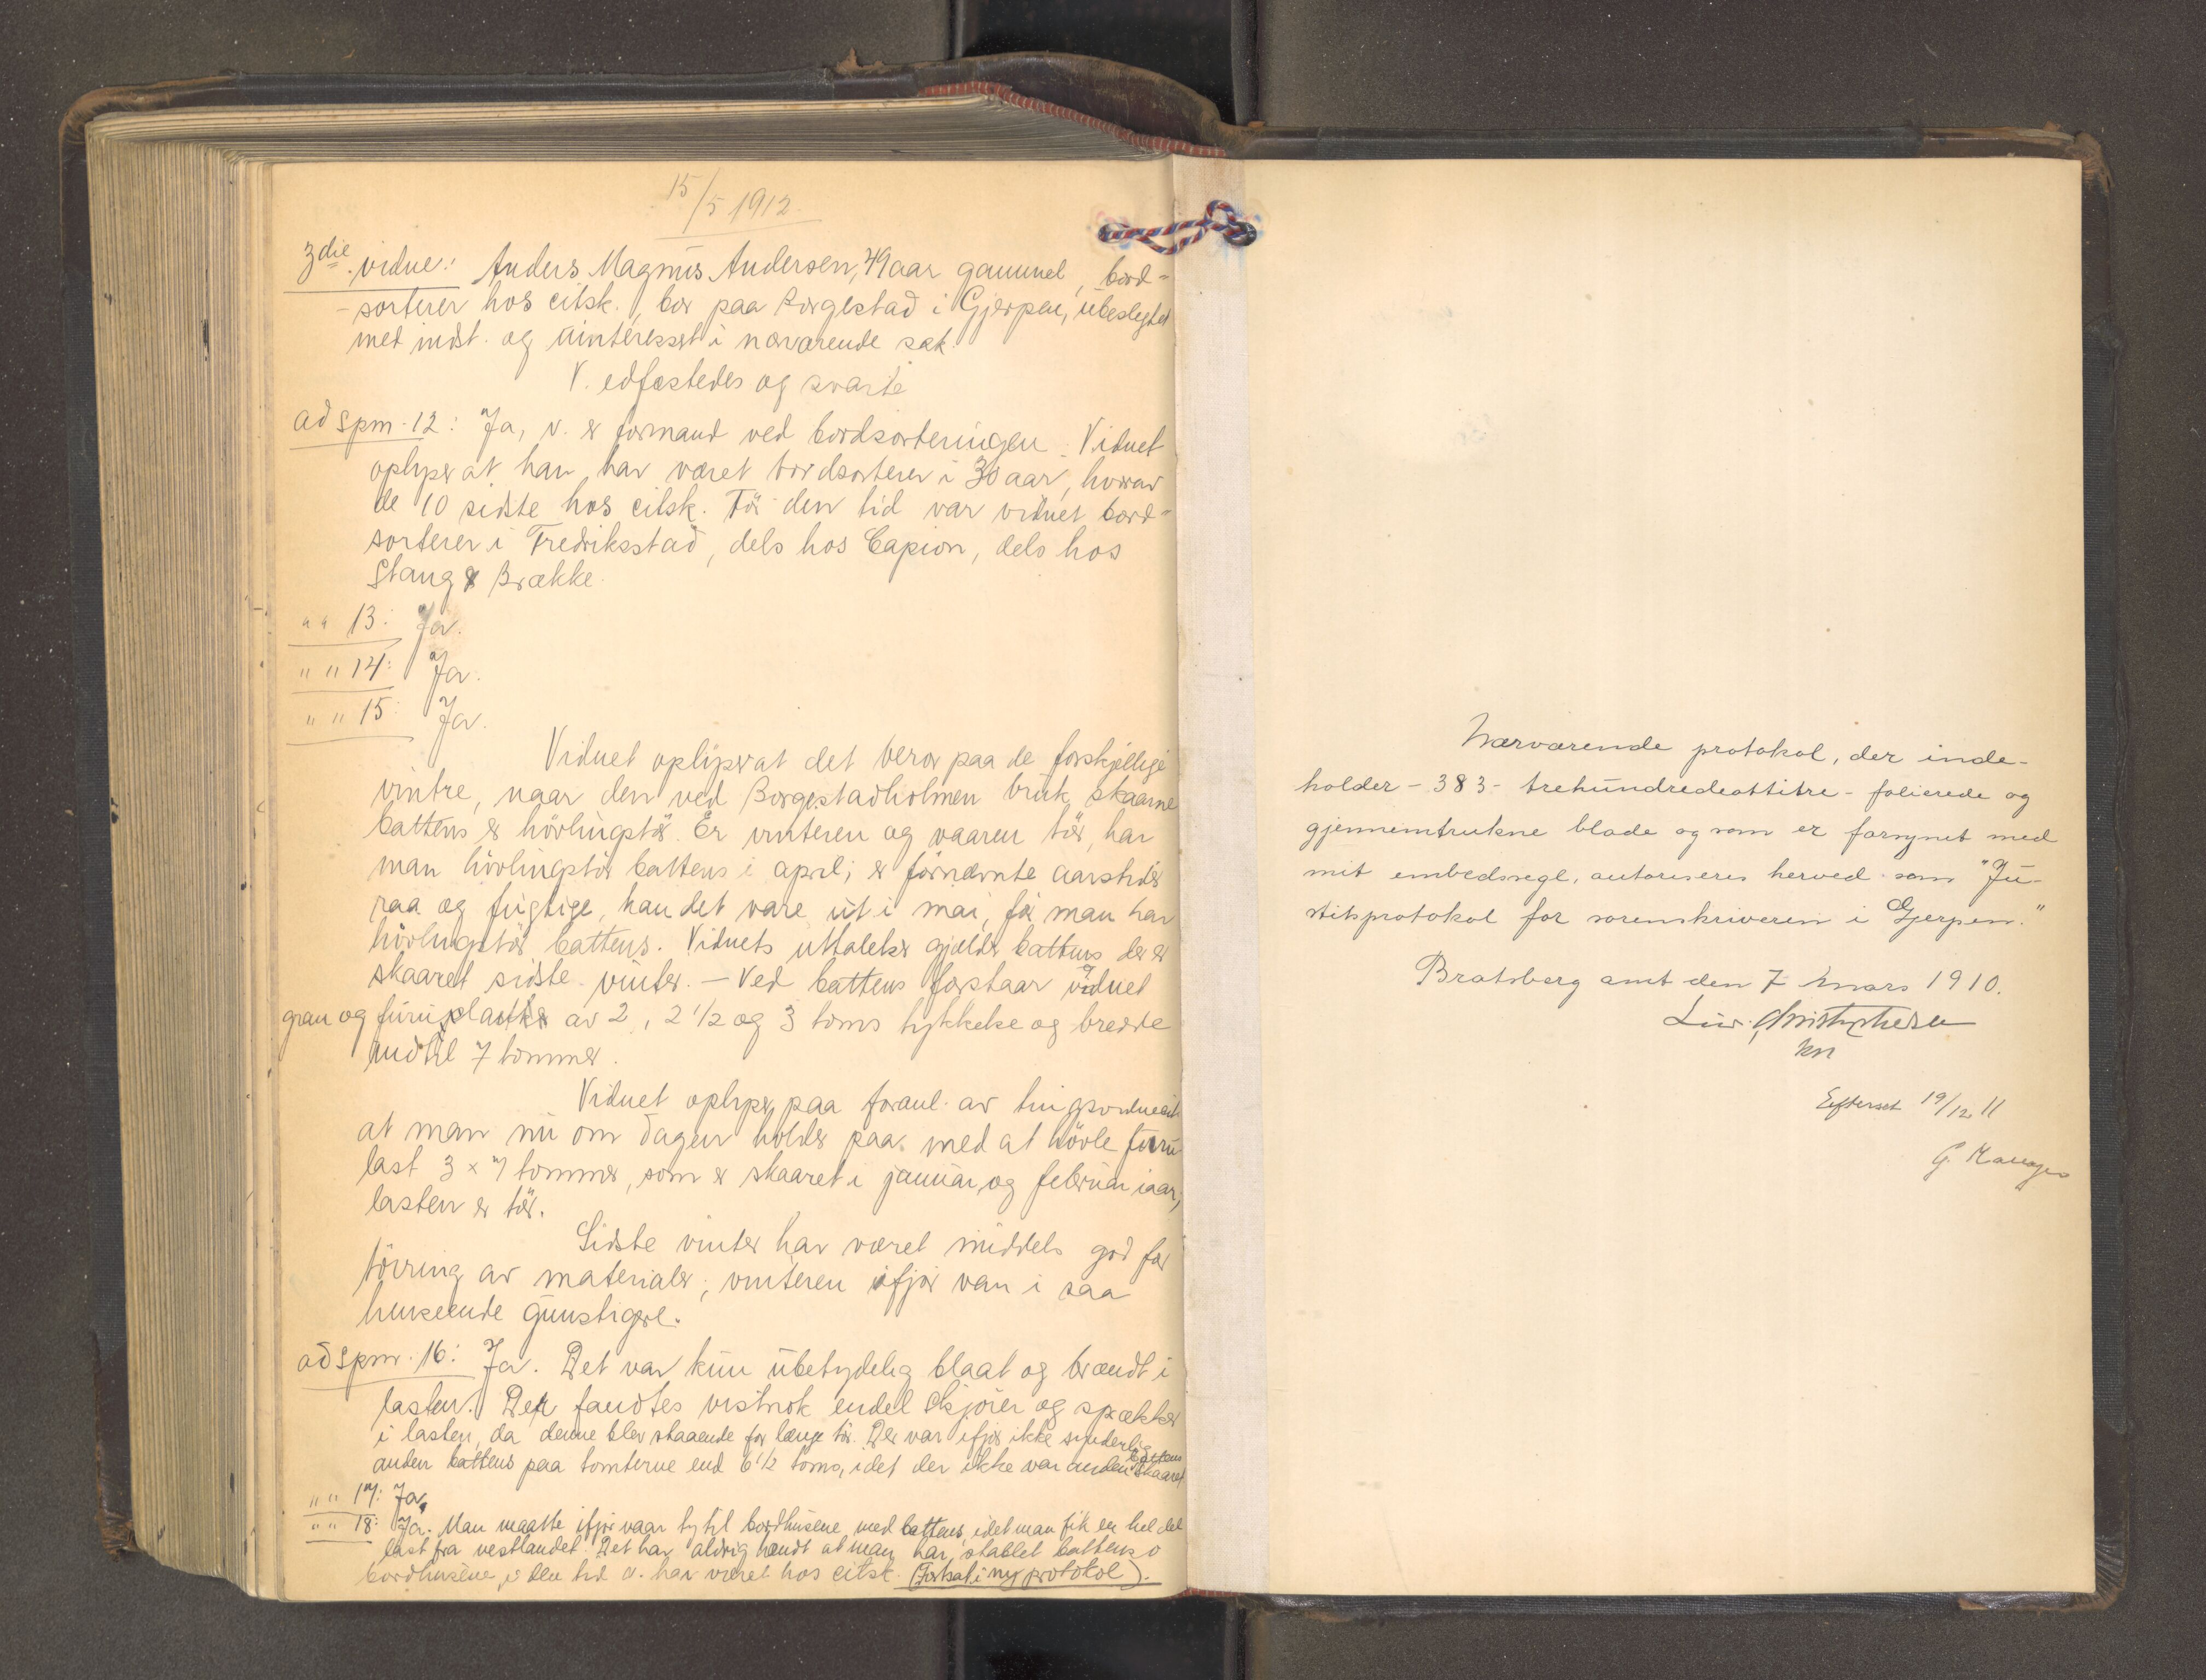 15/5 1912.
3die vidne: Anders Magnus Andersen, 49 aar gammel, bord-
-sorterer hos citsk., bor paa Borgestad i Gjerpen, ubeslegtet
med indst. og uinteressert i nærværende sak.
V. edfæstedes og svarte
ad spm. 12: Ja, v. er formand ved bordsorteringen. Vidnet
oplyser at han har været bordsorterer i 30 aar, hvorav
de 10 sidste hos citsk. Før den tid var vidnet bord-
sorterer i Fredriksstad, dels hos Capion, dels hos
Stang & Brække.
" " 13: Ja.
" " 14: Ja.
" " 15: Ja.
Vidnet oplyser at det beror paa de forskjellige
vintre, naar den ved Borgestadholmen bruk skaarne
battens er høvlingstør. Er vinteren og vaaren tør, har
man høvlingstør battens i april; er førnævnte aarstider
raa og fugtige, kan det vare ut i mai, før man har
høvlingstør battens. Vidnets uttalelser gjælder battens der er
skaaret sidste vinter. — Ved battens forstaar vidnet
gran og furuplanker av 2, 2 1/2 og 3 toms tykkelse og bredde
indtil 7 tommer.
Vidnet oplyser, paa foranl. av
at man nu om dagen holder paa med at høvle furu
last 3 x 7 tommer, som er skaaret i januar og februar iaar,
lasten er tør.
Sidste vinter har været middels god for
tørring av materialer; vinteren ifjor var i saa
henseende gunstigere.
ad spm. 16: Ja. Det var kun ubetydelig blaat og brændt i
lasten. Der fandtes vistnok endel skjører og sprækker
i lasten, da denne blev staaende for længe tør. Der var ifjor ikke synderlig
anden battens paa tomterne end 6 1/2 toms, idet der ikke var anden battens skaaret.
" " 17: Ja.
" " 18: Ja. Man maatte ifjor vaar ty til bordhusene med battens, idet man fik en hel del
last fra vestlandet. Det har aldrig hændt at man har stablet battens i
bordhusene i den tid v. har været hos citsk. (Fortsat i ny protokol).
Nærværende protokol, der inde-
holder - 383 - trehundredeottitre - folierede og
gjennemtrukne blade og som er forsynet med
mit embedssegl, autoriseres herved som "Ju-
stitsprotokol for sorenskriveren i Gjerpen."
Bratsberg amt den 7 mars 1910.
Christophersen
kn
Efterset 19/12 11
G.